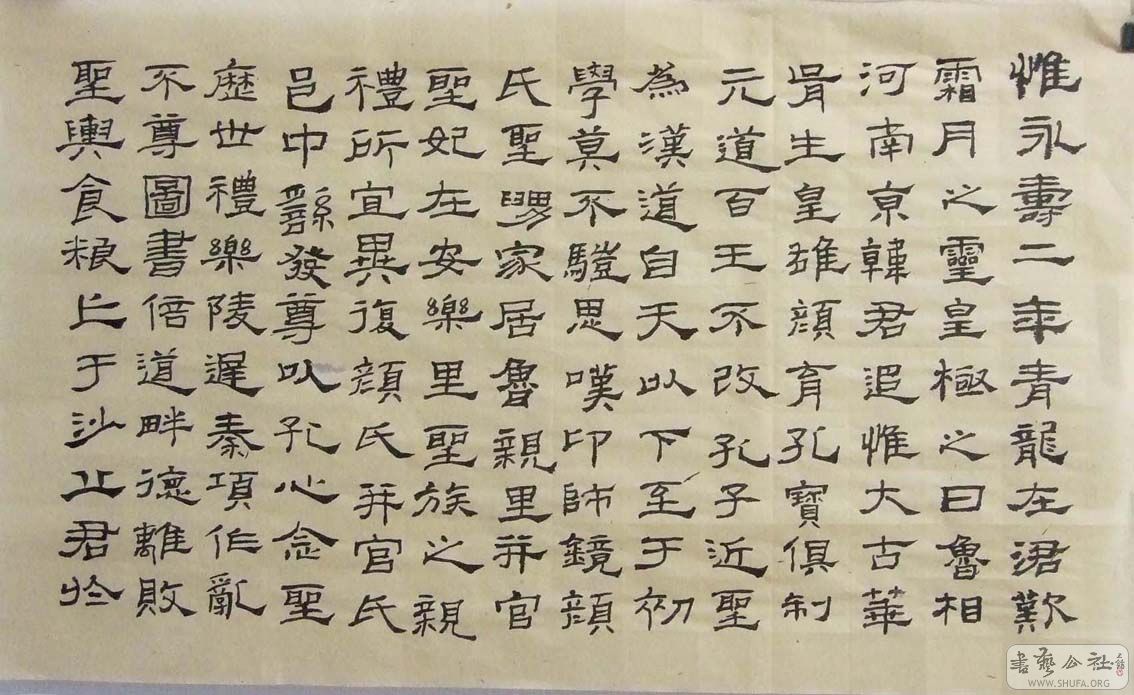 惟永壽二年青龍在涒歎
霜月之靈皇極之日魯相
河南京韓君追惟大古華
胥生皇雄顏育孔寶俱制
元道百王不改孔子近聖
為漢道自天以下至于初
學莫不驥思嘆卬師鏡顏
氏聖舅家居魯親里并官
聖妃在安樂里聖族之親
禮所宜異復顏氏并官氏
邑中繇發尊以孔心念聖
歷世禮樂陵遲秦項作亂
不尊圖書倍道畔德離敗
聖輿食糧亡于沙丘君於
書藝公社
WWW.SHUFA.ORG